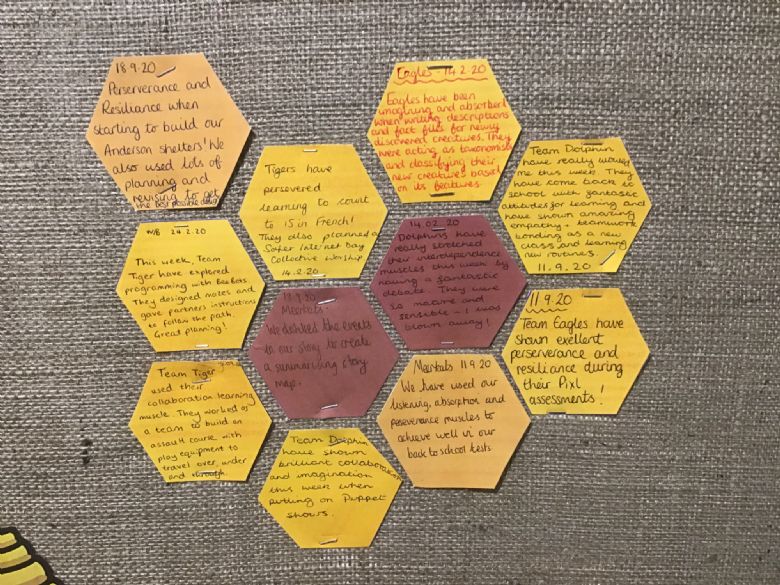 18.9.20
Perserverance and
Resilience when
starting to build our
Anderson shelters! We
also used lots of
planning and
revising to get
the best possible design
Eagles - 14.2.20
Eagles have been
imagining and absorbed
when writing descriptions
and fact files for newly
discovered creatures. They
were acting as taxonomists
and classifying their
new creatures based
on its features.
Tigers have
persevered
learning to count
to 15 in French!
They also planned a
Safer Internet Day
Collective Worship
14.2.20
Team Dolphin
have really wowed
me this week. They
have come back to
school with fantastic
attitudes for learning and
have shown amazing
empathy + teamwork
bonding as a new
class and learning
new routines.
11.9.20
WB 24.2.20
This week, Team
Tiger have explored
programming with BeeBots.
They designed mazes and
gave partners instructions
to follow the path.
Great planning!
14.02.20
Dolphins have
really stretched
their interdependence
muscles this week by
having a fantastic
debate. They were
so mature and
sensible - I was
blown away!
18.9.20
Meerkats
We distilled the events
in our story to create
a summarising story
map.
11.9.20
Team Eagles have
shown exellent
perserverance and
resilience during
their Pixl
assessments!
Team Tiger
used their
collaboration learning
muscle. They worked as
a team to build an
assault course with
play equipment to
travel over, under
and through
Meerkats 11.9.20
We have used our
listening, absorption and
perseverance muscles to
achieve well in our
back to school tests
Team Dolphin
have shown
brilliant collaboration
and imagination
this week when
putting on Puppet
shows.